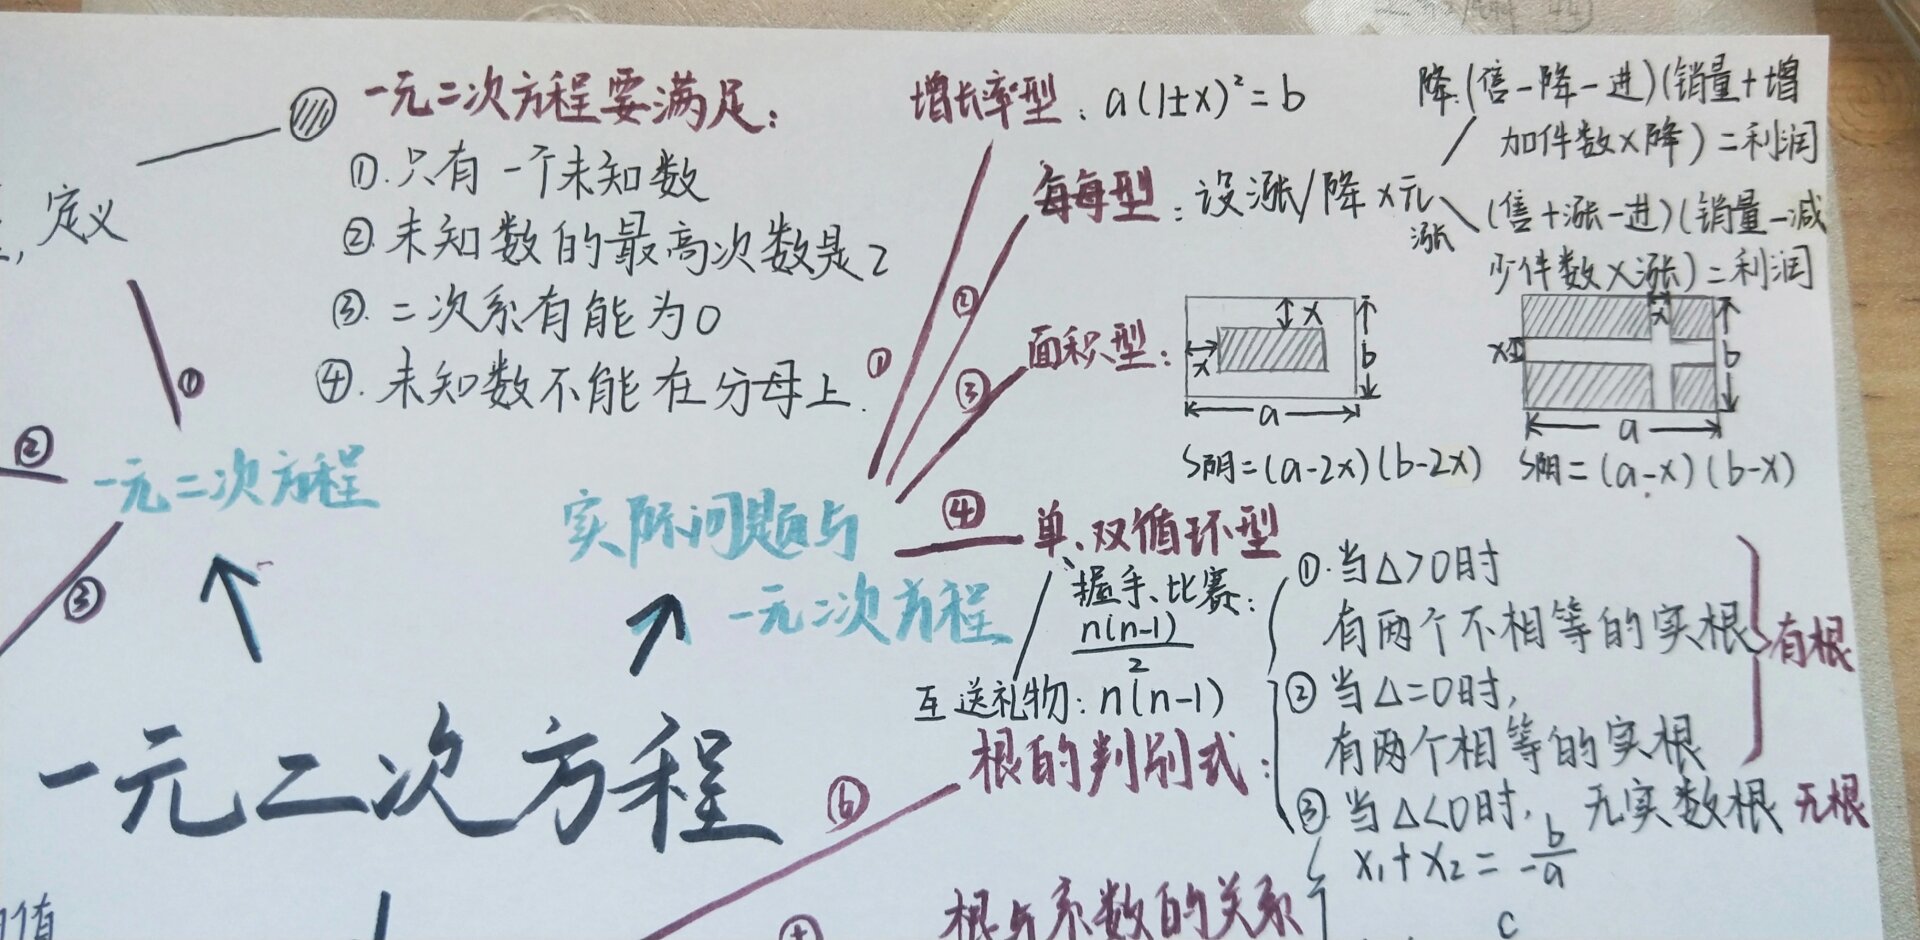 一元二次方程要满足:
①.只有一个未知数
②.未知数的最高次数是2
③.二次系有能为0
④.未知数不能在分母上.
定义
①
②
③
一元二次方程
增长率型:a(1±x)²=b
每每型:设涨/降x元
降:(售-降-进)(销量+增
加件数×降)=利润
涨
(售+涨-进)(销量-减
少件数×涨)=利润
面积型:
x
x
b
a
S阴=(a-2x)(b-2x)
x
x
b
a
S阴=(a-x)(b-x)
①
②
③
④
实际问题与
一元二次方程
单、双循环型
握手、比赛:
n(n-1)/2
互送礼物:n(n-1)
一元二次方程
⑥
根的判别式:
①.当△>0时
有两个不相等的实根
②当△=0时,
有两个相等的实根
有根
③.当△<0时, 无实数根 无根
根与系数的关系
x₁+x₂=-b/a
c
值